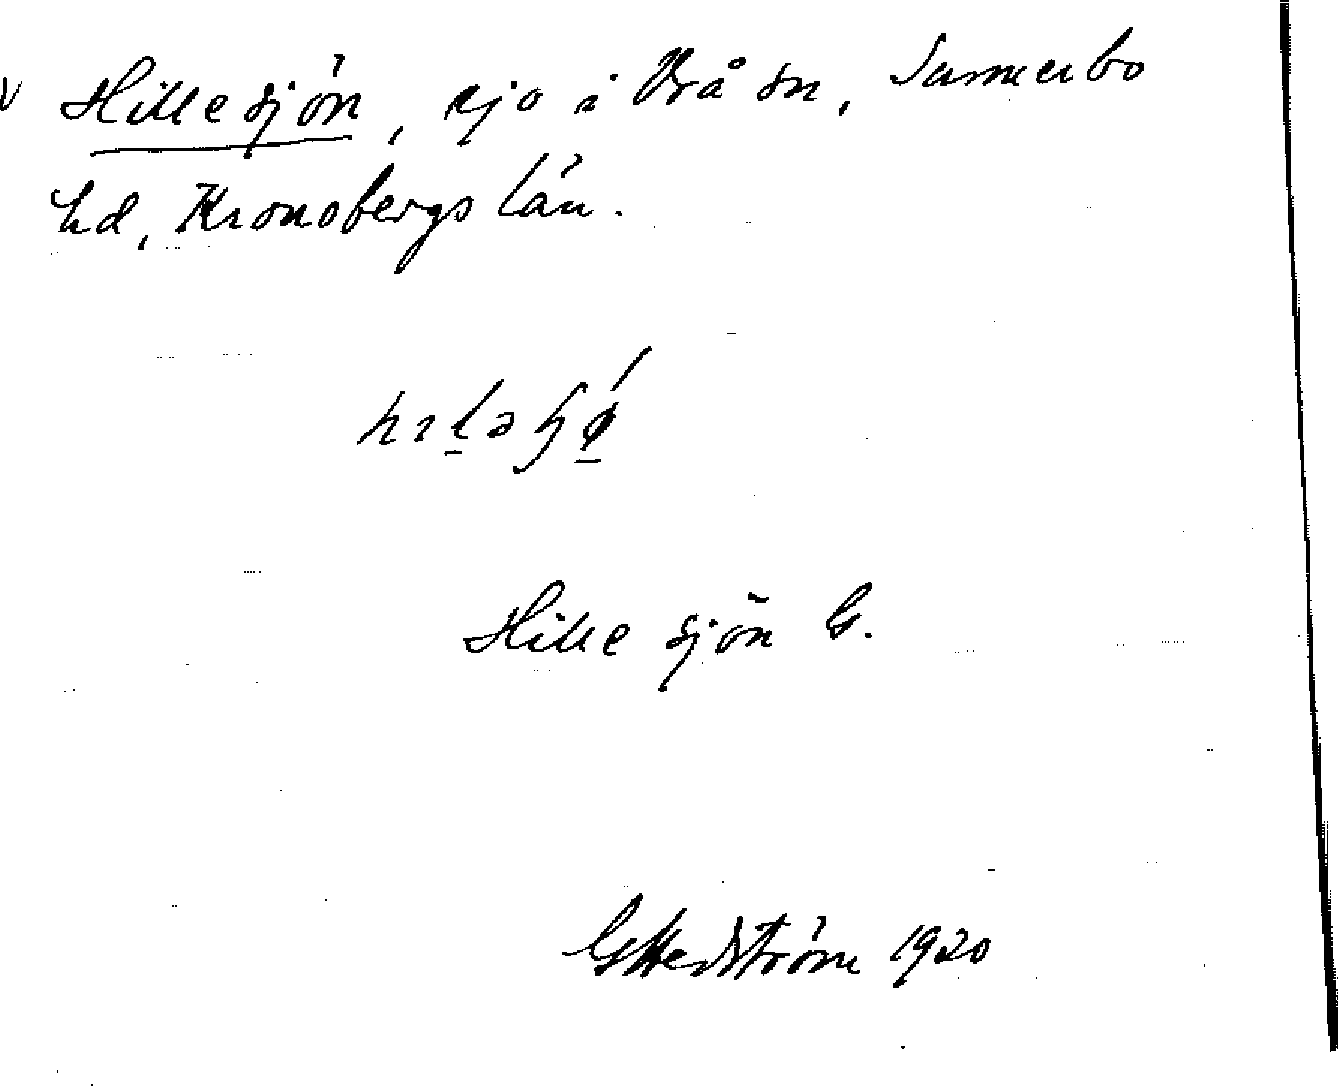 v Hillesjön, sjö i Vrå sn, Sunnerbo
hd, Kronobergs län.
Hille sjön G.
G Hedström 1920